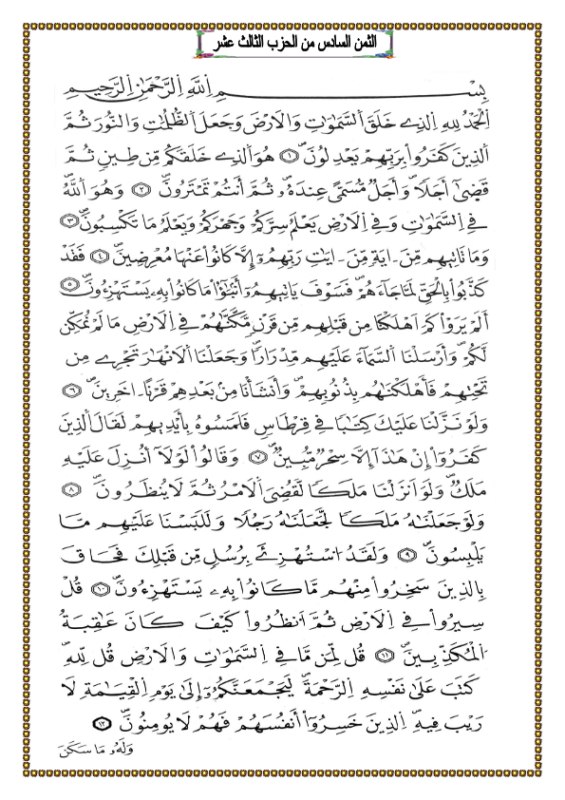 الثمن السادس من الحزب الثالث عشر
بِسْمِ اِللَّهِ اِلرَّحْمَٰنِ اِلرَّحِيمِ
اَلْحَمْدُ لِلهِ اِلذِے خَلَقَ اَلسَّمَٰوَٰتِ وَالَارْضَ وَجَعَلَ اَلظُّلُمَٰتِ وَالنُّورَ ثُمَّ
اَلذِينَ كَفَرُواْ بِرَبِّهِمْ يَعْدِلُونَۖ ١ هُوَ اَلذِے خَلَقَكُم مِّن طِينٖ ثُمَّ
قَضَىٰٓ أَجَلاٗۖ وَأَجَلٞ مُّسَمًّى عِندَهُۥ ثُمَّ أَنتُمْ تَمْتَرُونَۖ ٢ وَهُوَ اَللَّهُ
فِے اِلسَّمَٰوَٰتِ وَفِے اِلَارْضِ يَعْلَمُ سِرَّكُمْ وَجَهْرَكُمْ وَيَعْلَمُ مَا تَكْسِبُونَۖ ٣
وَمَا تَاتِيهِم مِّنَ ـ ايَةٖ مِّنَ ـ ايَٰتِ رَبِّهِمُۥٓ إِلَّا كَانُواْ عَنْهَا مُعْرِضِينَۖ ٤ فَقَدْ
كَذَّبُواْ بِالْحَقِّ لَمَّا جَآءَهُمْۖ فَسَوْفَ يَاتِيهِمُۥٓ أَنۢبَٰٓؤُاْ مَا كَانُواْ بِهِۦ يَسْتَهْزِءُونَۖ ٥
أَلَمْ يَرَوْاْ كَمَ اَهْلَكْنَا مِن قَبْلِهِم مِّن قَرْنٖ مَّكَّنَّٰهُمْ فِے اِلَارْضِ مَا لَمْ نُمَكِّن
لَّكُمْۖ وَأَرْسَلْنَا اَلسَّمَآءَ عَلَيْهِم مِّدْرَاراٗ وَجَعَلْنَا اَلَانْهَٰرَ تَجْرِے مِن
تَحْتِهِمْ فَأَهْلَكْنَٰهُم بِذُنُوبِهِمْۖ وَأَنشَأْنَا مِنۢ بَعْدِهِمْ قَرْناً ـ اخَرِينَۖ ٦
وَلَوْ نَزَّلْنَا عَلَيْكَ كِتَٰباٗ فِے قِرْطَاسٖ فَلَمَسُوهُ بِأَيْدِيهِمْ لَقَالَ اَلذِينَ
كَفَرُوٓاْ إِنْ هَٰذَآ إِلَّا سِحْرٞ مُّبِينٞۖ ٧ وَقَالُواْ لَوْلَآ أُنزِلَ عَلَيْهِ
مَلَكٞۖ وَلَوَ اَنزَلْنَا مَلَكاٗ لَّقُضِيَ اَلَامْرُ ثُمَّ لَا يُنظَرُونَۖ ٨
وَلَوْ جَعَلْنَٰهُ مَلَكاٗ لَّجَعَلْنَٰهُ رَجُلاٗ وَلَلَبَسْنَا عَلَيْهِم مَّا
يَلْبِسُونَۖ ٩ وَلَقَدُ اُسْتُهْزِئَ بِرُسُلٖ مِّن قَبْلِكَ فَحَاقَ
بِالذِينَ سَخِرُواْ مِنْهُم مَّا كَانُواْ بِهِۦ يَسْتَهْزِءُونَۖ ١٠ قُلْ
سِيرُواْ فِے اِلَارْضِ ثُمَّ اَنظُرُواْ كَيْفَ كَانَ عَٰقِبَةُ
اُلْمُكَذِّبِينَۖ ١١ قُل لِّمَن مَّا فِے اِلسَّمَٰوَٰتِ وَالَارْضِ قُل لِّلهِۖ
كَتَبَ عَلَىٰ نَفْسِهِ اِلرَّحْمَةَۖ لَيَجْمَعَنَّكُمُۥٓ إِلَىٰ يَوْمِ اِلْقِيَٰمَةِ لَا
رَيْبَ فِيهِۖ اِلذِينَ خَسِرُوٓاْ أَنفُسَهُمْ فَهُمْ لَا يُومِنُونَۖ ١٢
وَلَهُۥ مَا سَكَنَ